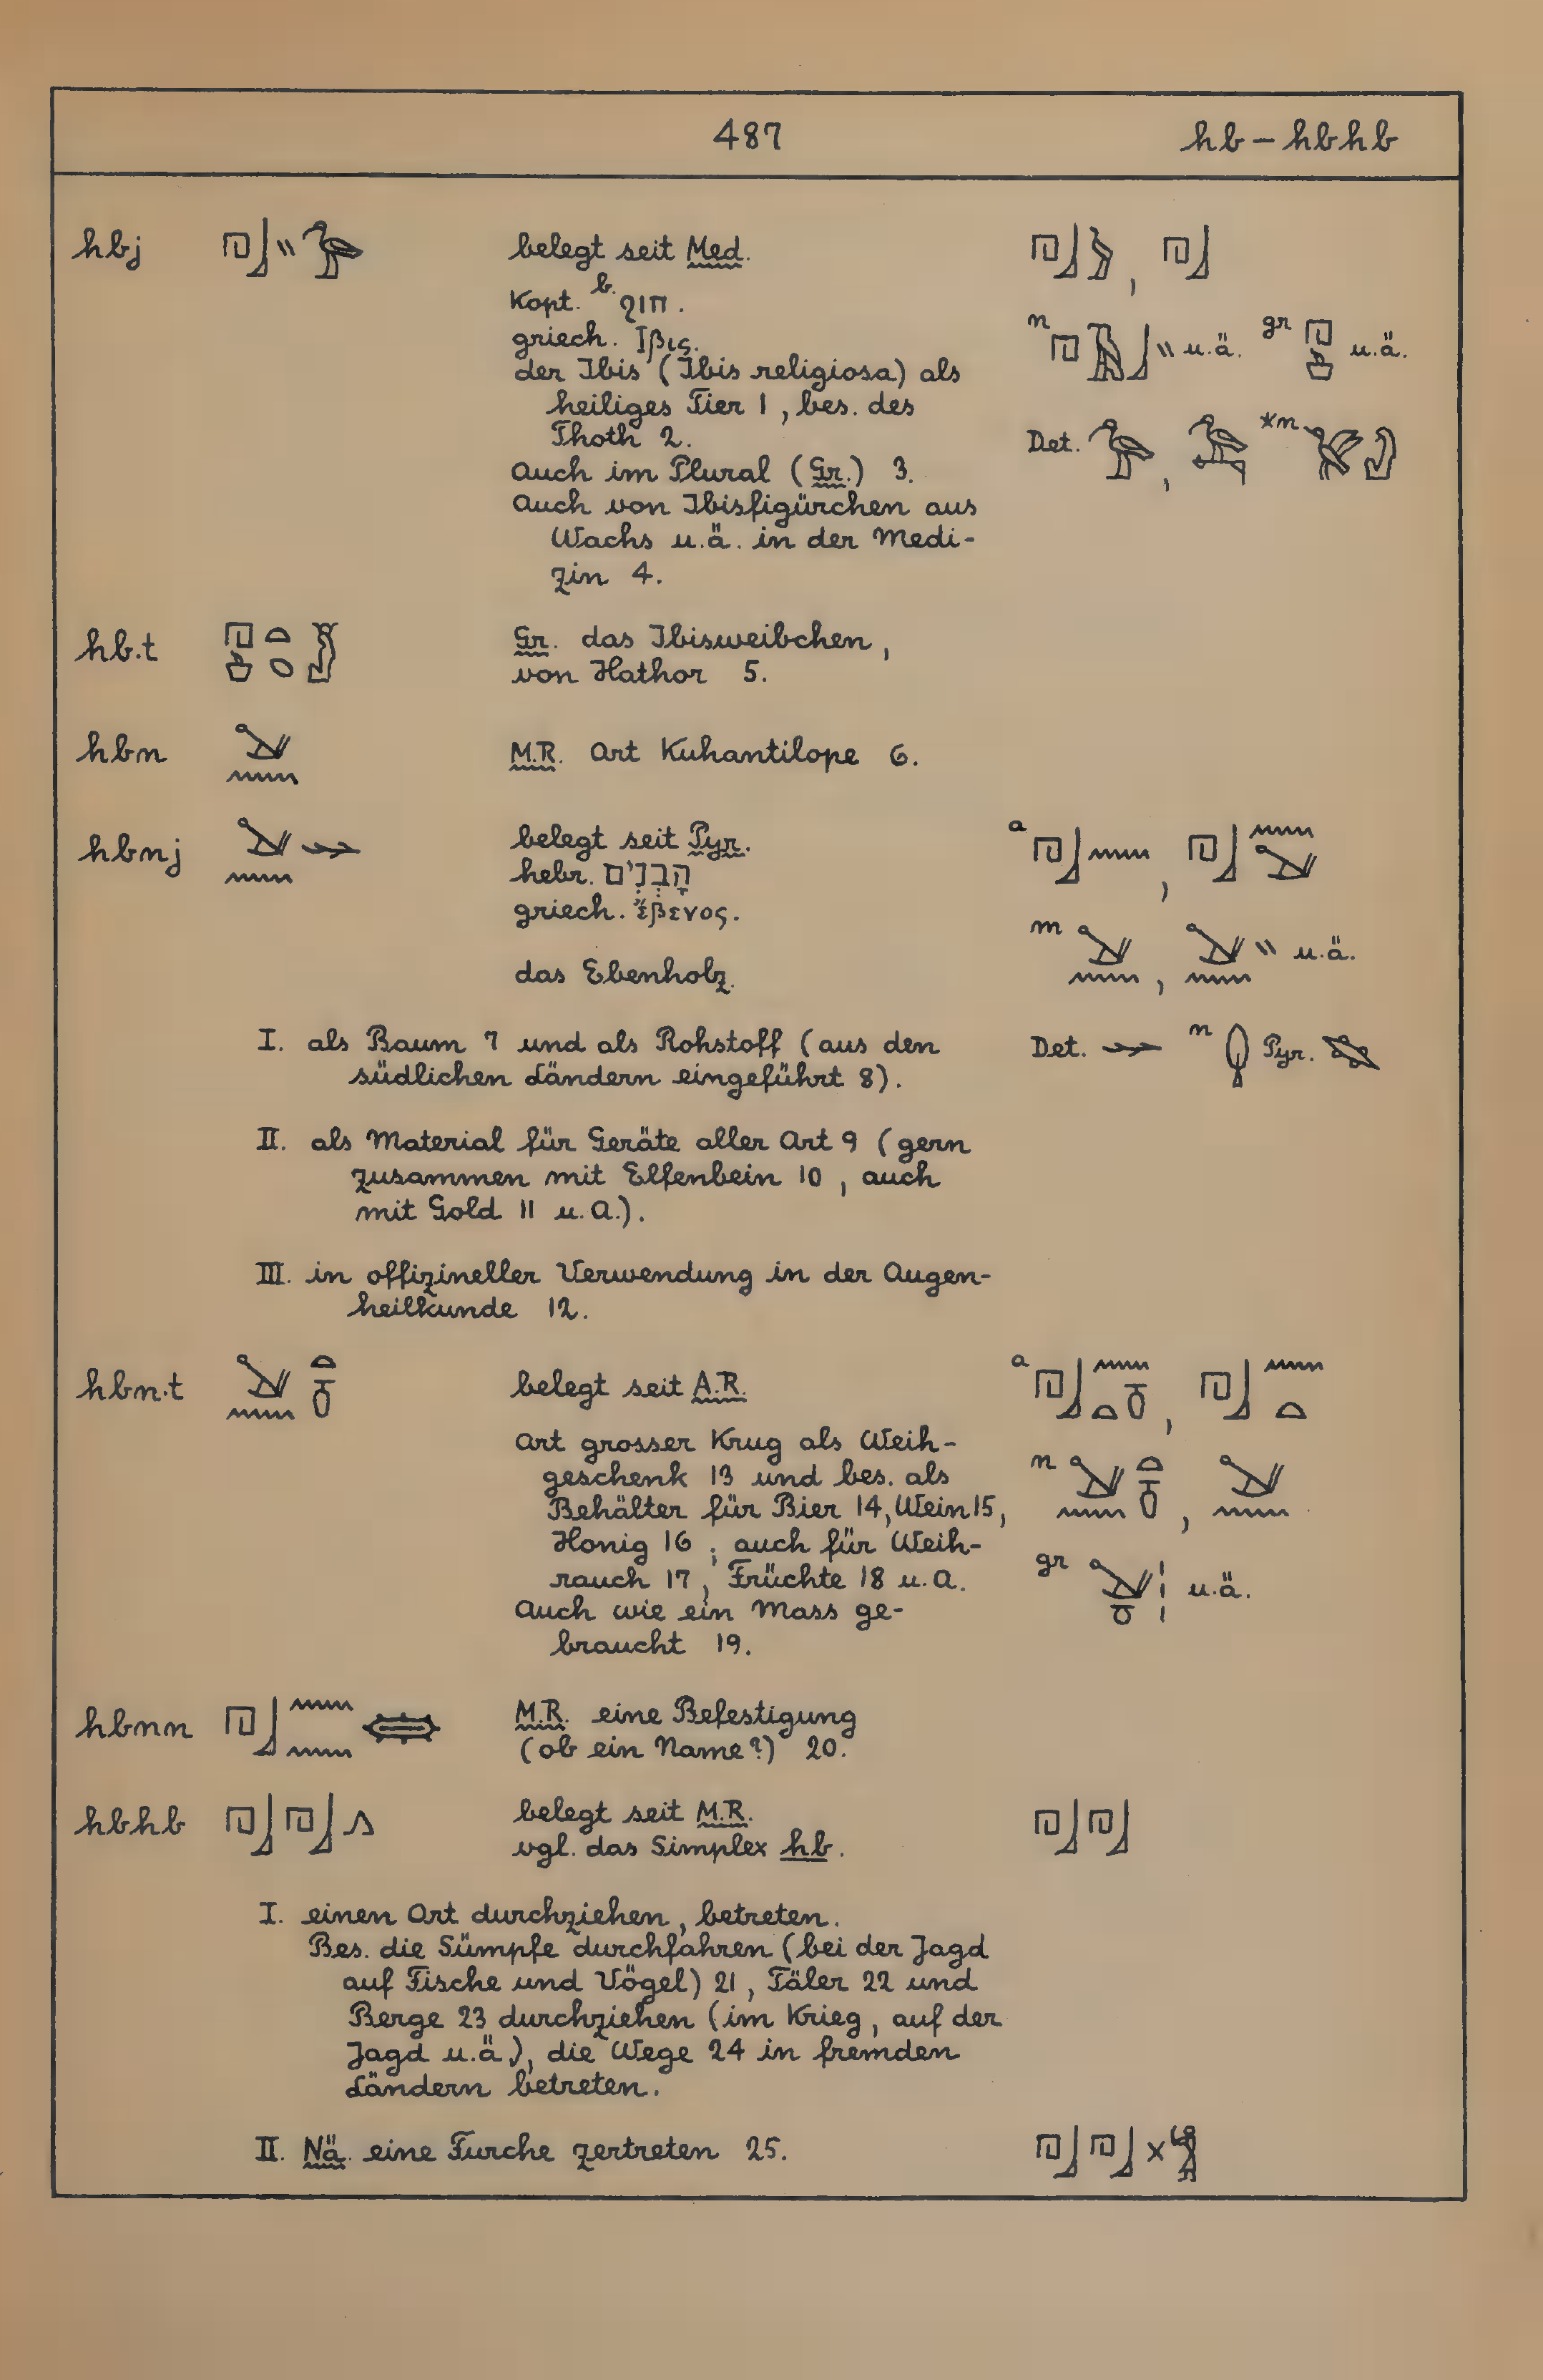 487 hb – hbhb
hbj belegt seit Med.
Kopt. b. ϩⲓⲡ.
griech. Ἶβις.
der Ibis (Ibis religiosa) als
heiliges Tier 1, bes. des
Thoth 2.
Auch im Plural (Gr.) 3.
Auch von Ibisfigürchen aus
Wachs u.ä. in der Medi-
zin 4.
n u.ä. gr u.ä.
Det. *n
hb.t Gr. das Ibisweibchen,
von Hathor 5.
hbn M.R. Art Kuhantilope 6.
hbnj belegt seit Pyr.
hebr. הָבְנִים
griech. ἔβενος.
das Ebenholz.
a
m u.ä.
I. als Baum 7 und als Rohstoff (aus den
südlichen Ländern eingeführt 8).
Det. n Pyr.
II. als Material für Geräte aller Art 9 (gern
zusammen mit Elfenbein 10, auch
mit Gold 11 u.A.).
III. in offizineller Verwendung in der Augen-
heilkunde 12.
hbn.t belegt seit A.R.
Art grosser Krug als Weih-
geschenk 13 und bes. als
Behälter für Bier 14, Wein 15,
Honig 16; auch für Weih-
rauch 17, Früchte 18 u.A.
Auch wie ein Mass ge-
braucht 19.
a
n
gr u.ä.
hbnn M.R. eine Befestigung
(ob ein Name?) 20.
hbhb belegt seit M.R.
vgl. das Simplex hb.
I. einen Ort durchziehen, betreten.
Bes. die Sümpfe durchfahren (bei der Jagd
auf Fische und Vögel) 21, Täler 22 und
Berge 23 durchziehen (im Krieg, auf der
Jagd u.ä.), die Wege 24 in fremden
Ländern betreten.
II. Nä. eine Furche zertreten 25.